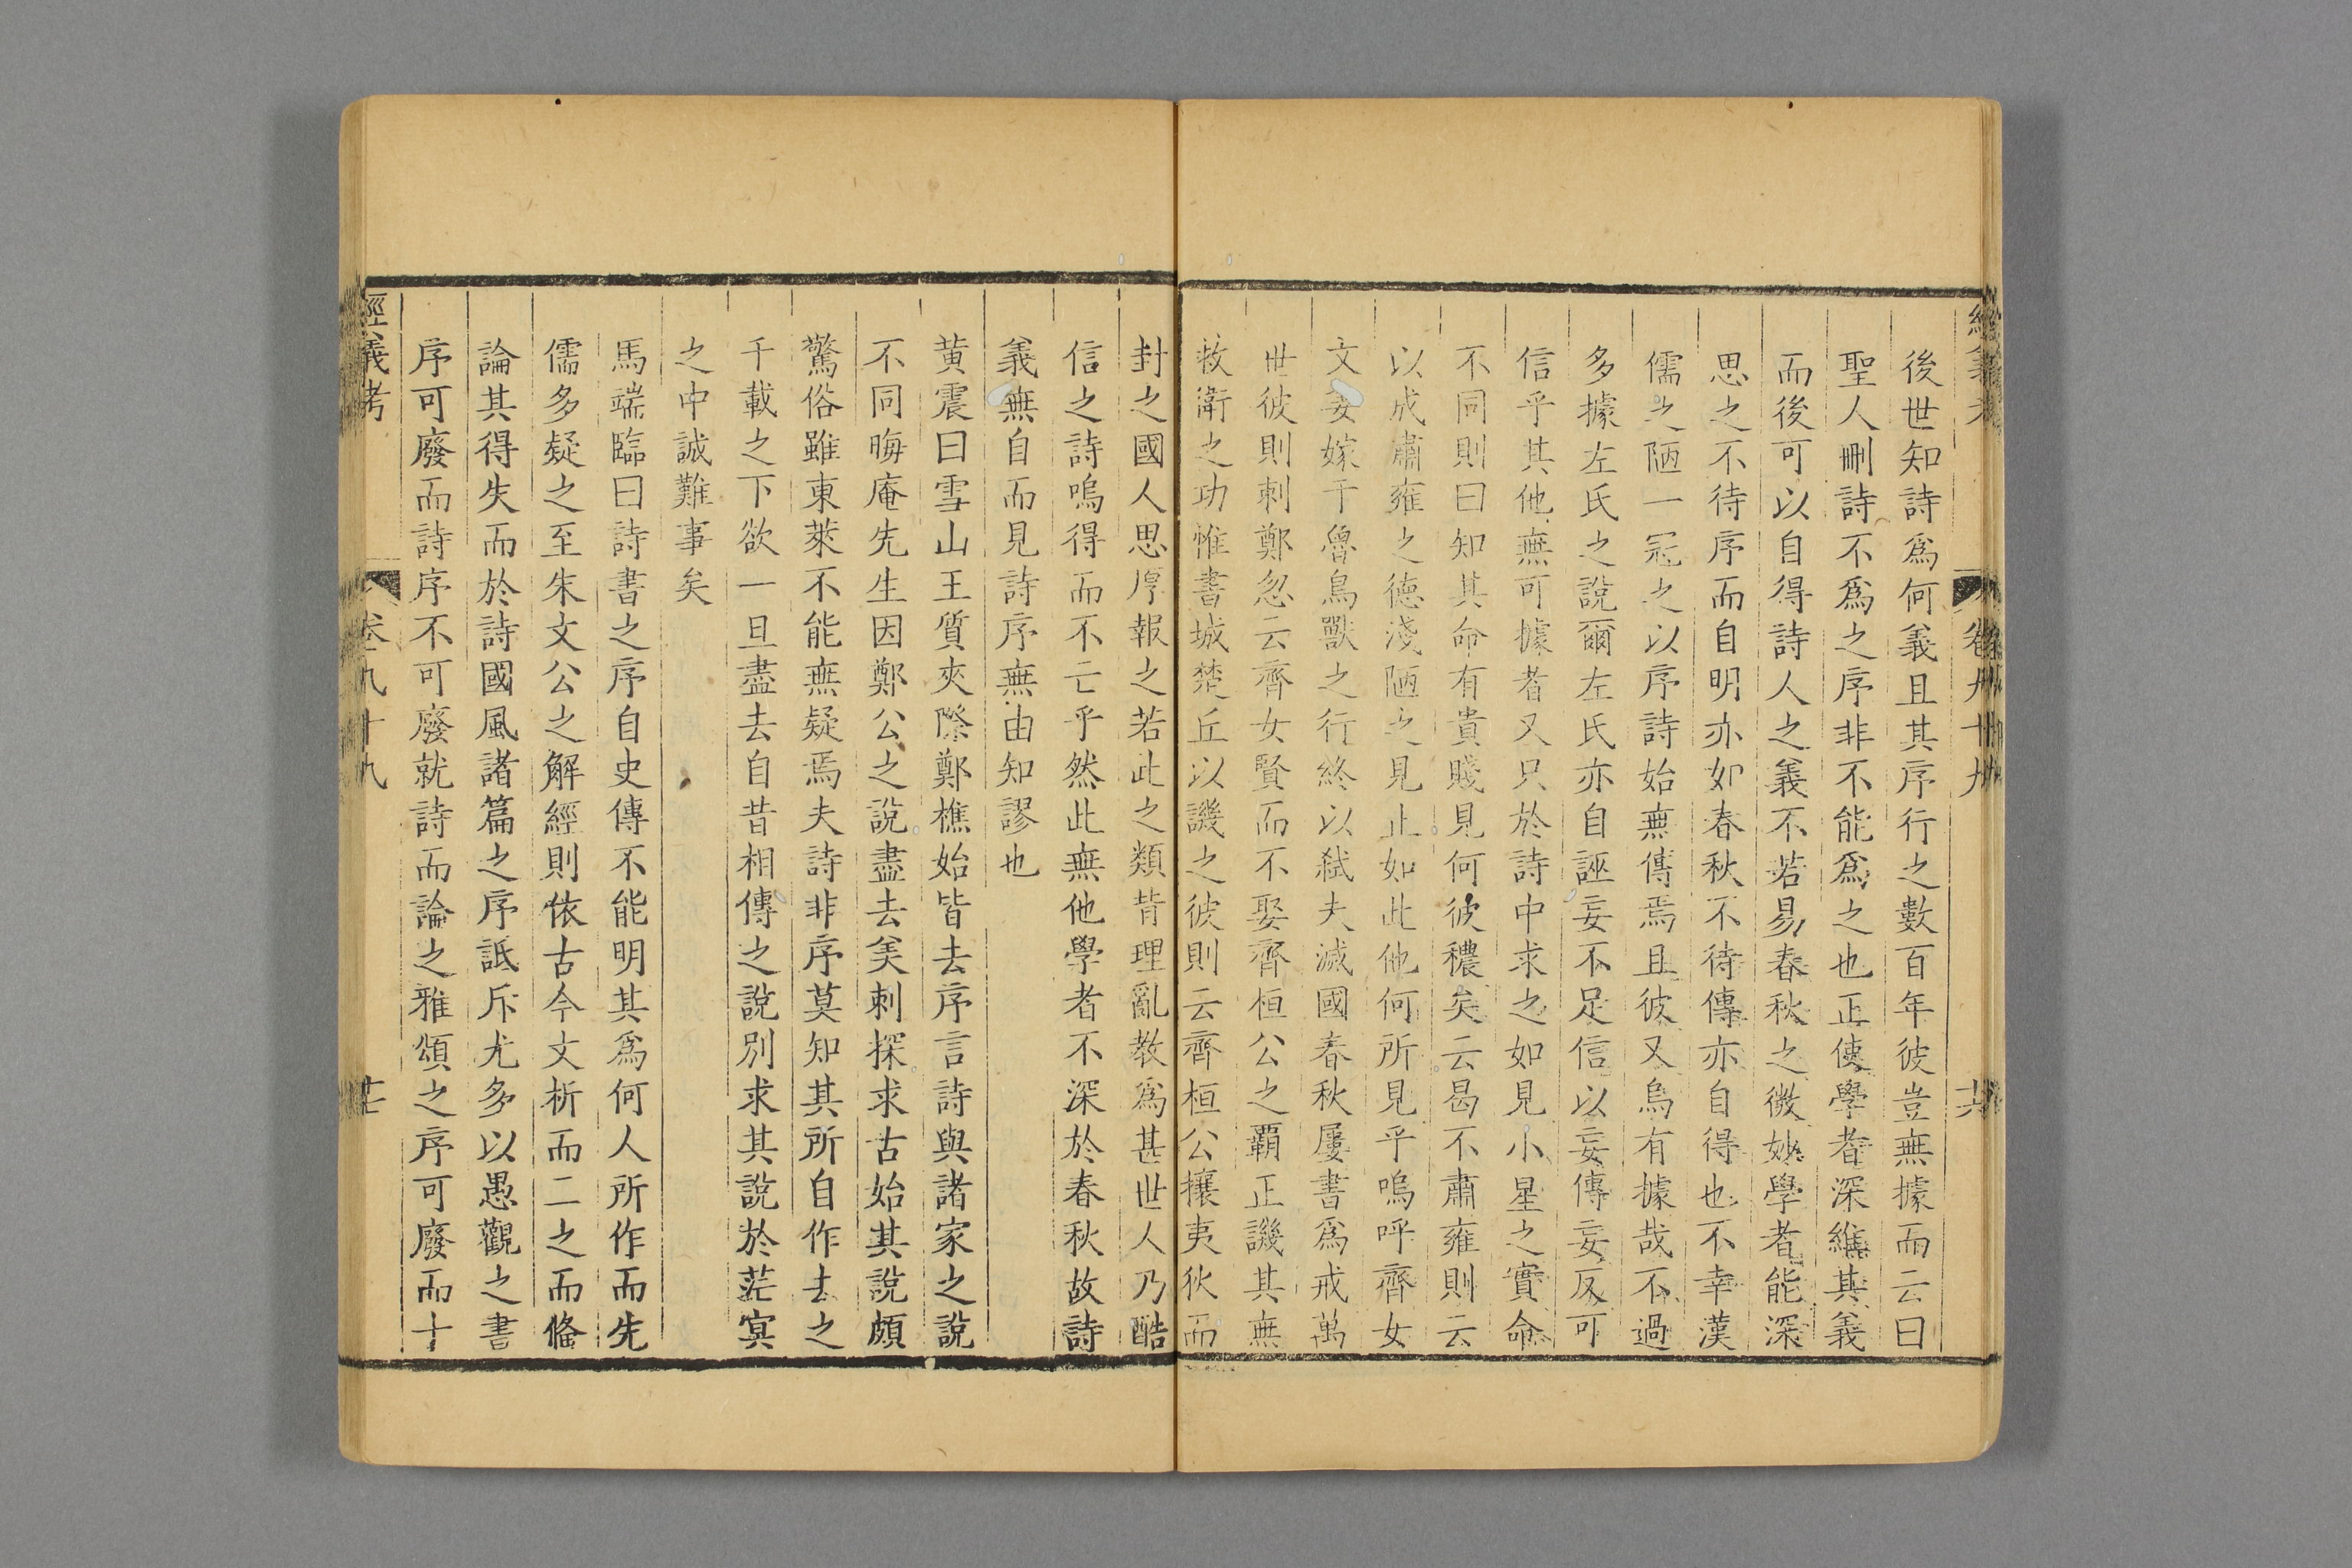 經義考
卷九十九
後世知詩爲何義且其序行之數百年彼豈無據而云曰
聖人刪詩不爲之序非不能爲之也正使學者深維其義
而後可以自得詩人之義不若易春秋之微妙學者能深
思之不待序而自明亦如春秋不待傳亦自得也不幸漢
儒之陋一冠之以序詩始無傳焉且彼又烏有據哉不過
多據左氏之說爾左氏亦自誣妄不足信以妄傳妄反可
信乎其他無可據者又只於詩中求之如見小星之實命
不同則曰知其命有貴賤見何彼穠矣云曷不肅雍則云
以成肅雍之德淺陋之見止如此他何所見乎嗚呼齊女
文姜嫁于魯鳥獸之行終以弒夫滅國春秋屢書爲戒萬
世彼則刺鄭忽云齊女賢而不娶齊桓公之覇正譏其無
救衛之功惟書城楚丘以譏之彼則云齊桓公攘夷狄而
封之國人思厚報之若此之類背理亂敎爲甚世人乃酷
信之詩嗚得而不亡乎然此無他學者不深於春秋故詩
義無自而見詩序無由知謬也
黃震曰雪山王質夾際鄭樵始皆去序言詩與諸家之說
不同晦庵先生因鄭公之說盡去美刺探求古始其說頗
驚俗雖東萊不能無疑焉夫詩非序莫知其所自作去之
千載之下欲一旦盡去自昔相傳之說別求其說於茫冥
之中誠難事矣
馬端臨曰詩書之序自史傳不能明其爲何人所作而先
儒多疑之至朱文公之解經則依古今文析而二之而備
論其得失而於詩國風諸篇之序詆斥尤多以愚觀之書
序可廢而詩序不可廢就詩而論之雅頌之序可廢而十
經義考
卷九十九